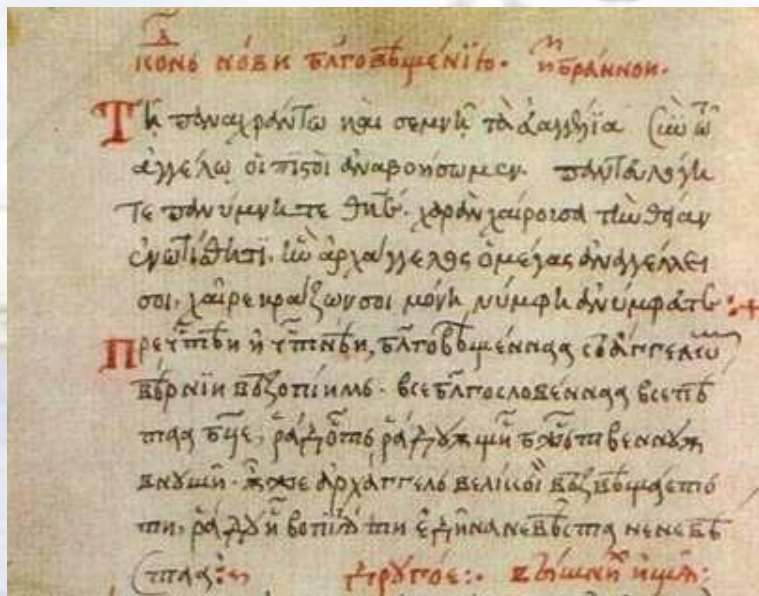 конь нови бл҃говѣщенїю. избранной.
Τῆ παναχράντω καὶ σεμνῆ τὰ
ἀγγέλω οἱ πιστοὶ ἀναβοήσωμεν. πανευλογη
τε πανύμνητε χαρὰν χαίρουσα τὴν θείαν
ἐνωτίσθητι. ἣν ἀρχάγγελος ὁ μέγας ἀναγγέλλει
σοι, χαῖρε κράζων σοι μόνη νύμφη ἀνύμφευτε:+
Пречⷭ҇тѣи и чⷭ҇тнѣи, бл҃говѣщеннаа съ аггелѡⷨ
вѣрнїи възопїимь. все бл҃гословеннаа всепѣ
таа бц҃е, радость радꙋѫщи бжⷭ҇твеннꙋѫ
внꙋши. ѫже архаггель великои възвѣщаеть
ти, радꙋи вопїѧ ти едина невѣста неневѣ
стаа: дрꙋгое:.